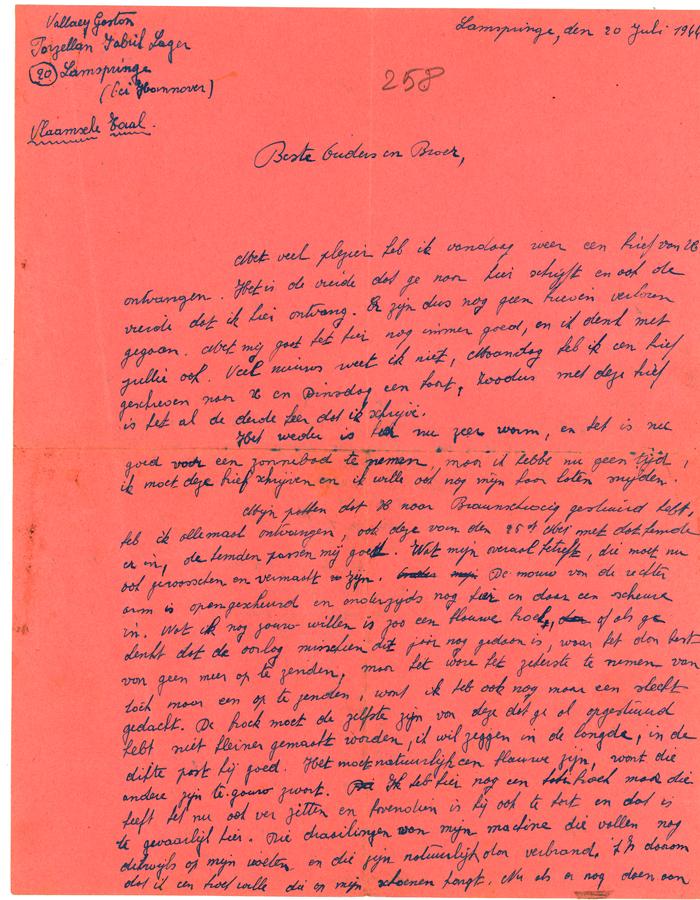 Vallaey Gaston
Porzellan Fabrik Lager
(20) Lamspringe
(bei Hannover)
Vlaamsche Taal.
Lamspringe, den 20 Juli 1944
258
Beste Ouders en Broer,
Met veel plezier heb ik vandaag weer een brief van U
ontvangen. Het is de vreide dat ge naar hier schrijft en ook de
vreide dat ik hier ontvang. Er zijn dus nog geen brieven verloren
gegaan. Met mij gaat het hier nog immer goed, en ik denk met
jullie ook. Veel nieuws weet ik niet, Maandag heb ik een brief
geschreven naar U en Dinsdag een kaart, Zoodus met deze brief
is het al de derde keer dat ik schrijve.
Het weder is hier nu zeer warm, en het is nu
goed voor een zonnebad te nemen, maar ik hebbe nu geen tijd,
ik moet deze brief schrijven en ik wille ook nog mijn haar laten snijden.
Mijn pakken dat U naar Braunschweig gestuurd hebt,
heb ik allemaal ontvangen, ook deze van den 25st Mei met dat hemde
er in, de hemden passen mij goed. Wat mijn overal betreft, die moet nu
ook gewasschen en vermaakt zijn. De mouw van de rechter
arm is opengescheurd en onderzijds nog hier en daar een scheure
in. Wat ik nog zouw willen is zoo een blauwe broek, of als ge
denkt dat de oorlog misschien dit jaar nog gedaan is, waar het dan best
van geen meer op te zenden, maar het ware het zekerste te nemen van
toch maar een op te zenden, want ik heb ook nog maar een slecht
gedacht. De broek moet de zelfste zijn van deze dat ge al opgestuurd
hebt niet kleiner gemaakt worden, ik wil zeggen in de langde, in de
dikte past hij goed. Het moet natuurlijk een blauwe zijn, want die
andere zijn te gauw zwart. Ik heb hier nog een broek maar die
heeft het nu ook ver zitten en bovendien is hij ook te kort en dat is
te gevaarlijk hier. Die draailingen van mijn machine die vallen nog
dikwijls op mijn voeten en die zijn natuurlijk dan verbrand. 't Is daarom
dat ik een broek wille die op mijn schoenen hangt. Nu als er nog doen aan